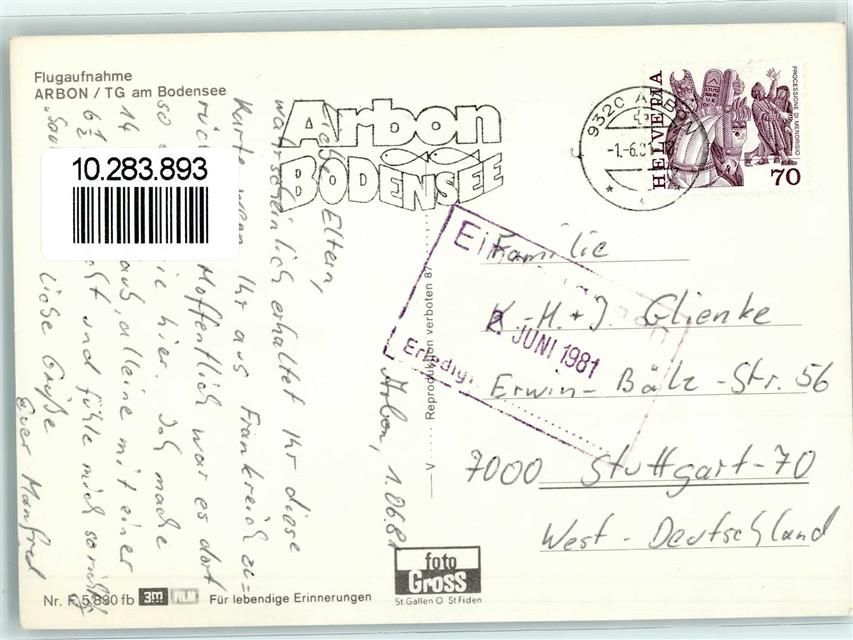 Flugaufnahme
ARBON / TG am Bodensee
Arbon
BODENSEE
9320 ARBON
-1.-6.81
HELVETIA
PROCESSIONE DI MENDRISIO
70
10.283.893
Arbon, 1.06.81
Liebe Eltern,
wahrscheinlich erhaltet Ihr diese
Karte wenn Ihr aus Frankreich zu=
Hoffentlich war es dort
so hier. Ich mache
14 aus, alleine mit einer
6½ und fühle mich so richtig
"Sau
Liebe Grüße
Euer Manfred
Familie
K.-H. + J. Glienke
Erwin-Bälz-Str. 56
7000 Stuttgart-70
West-Deutschland
2. JUNI 1981
Erledigt
Reproduktion verboten 87
foto
Gross
St.Gallen O St.Fiden
Nr. F 5 830 fb 3m Für lebendige Erinnerungen